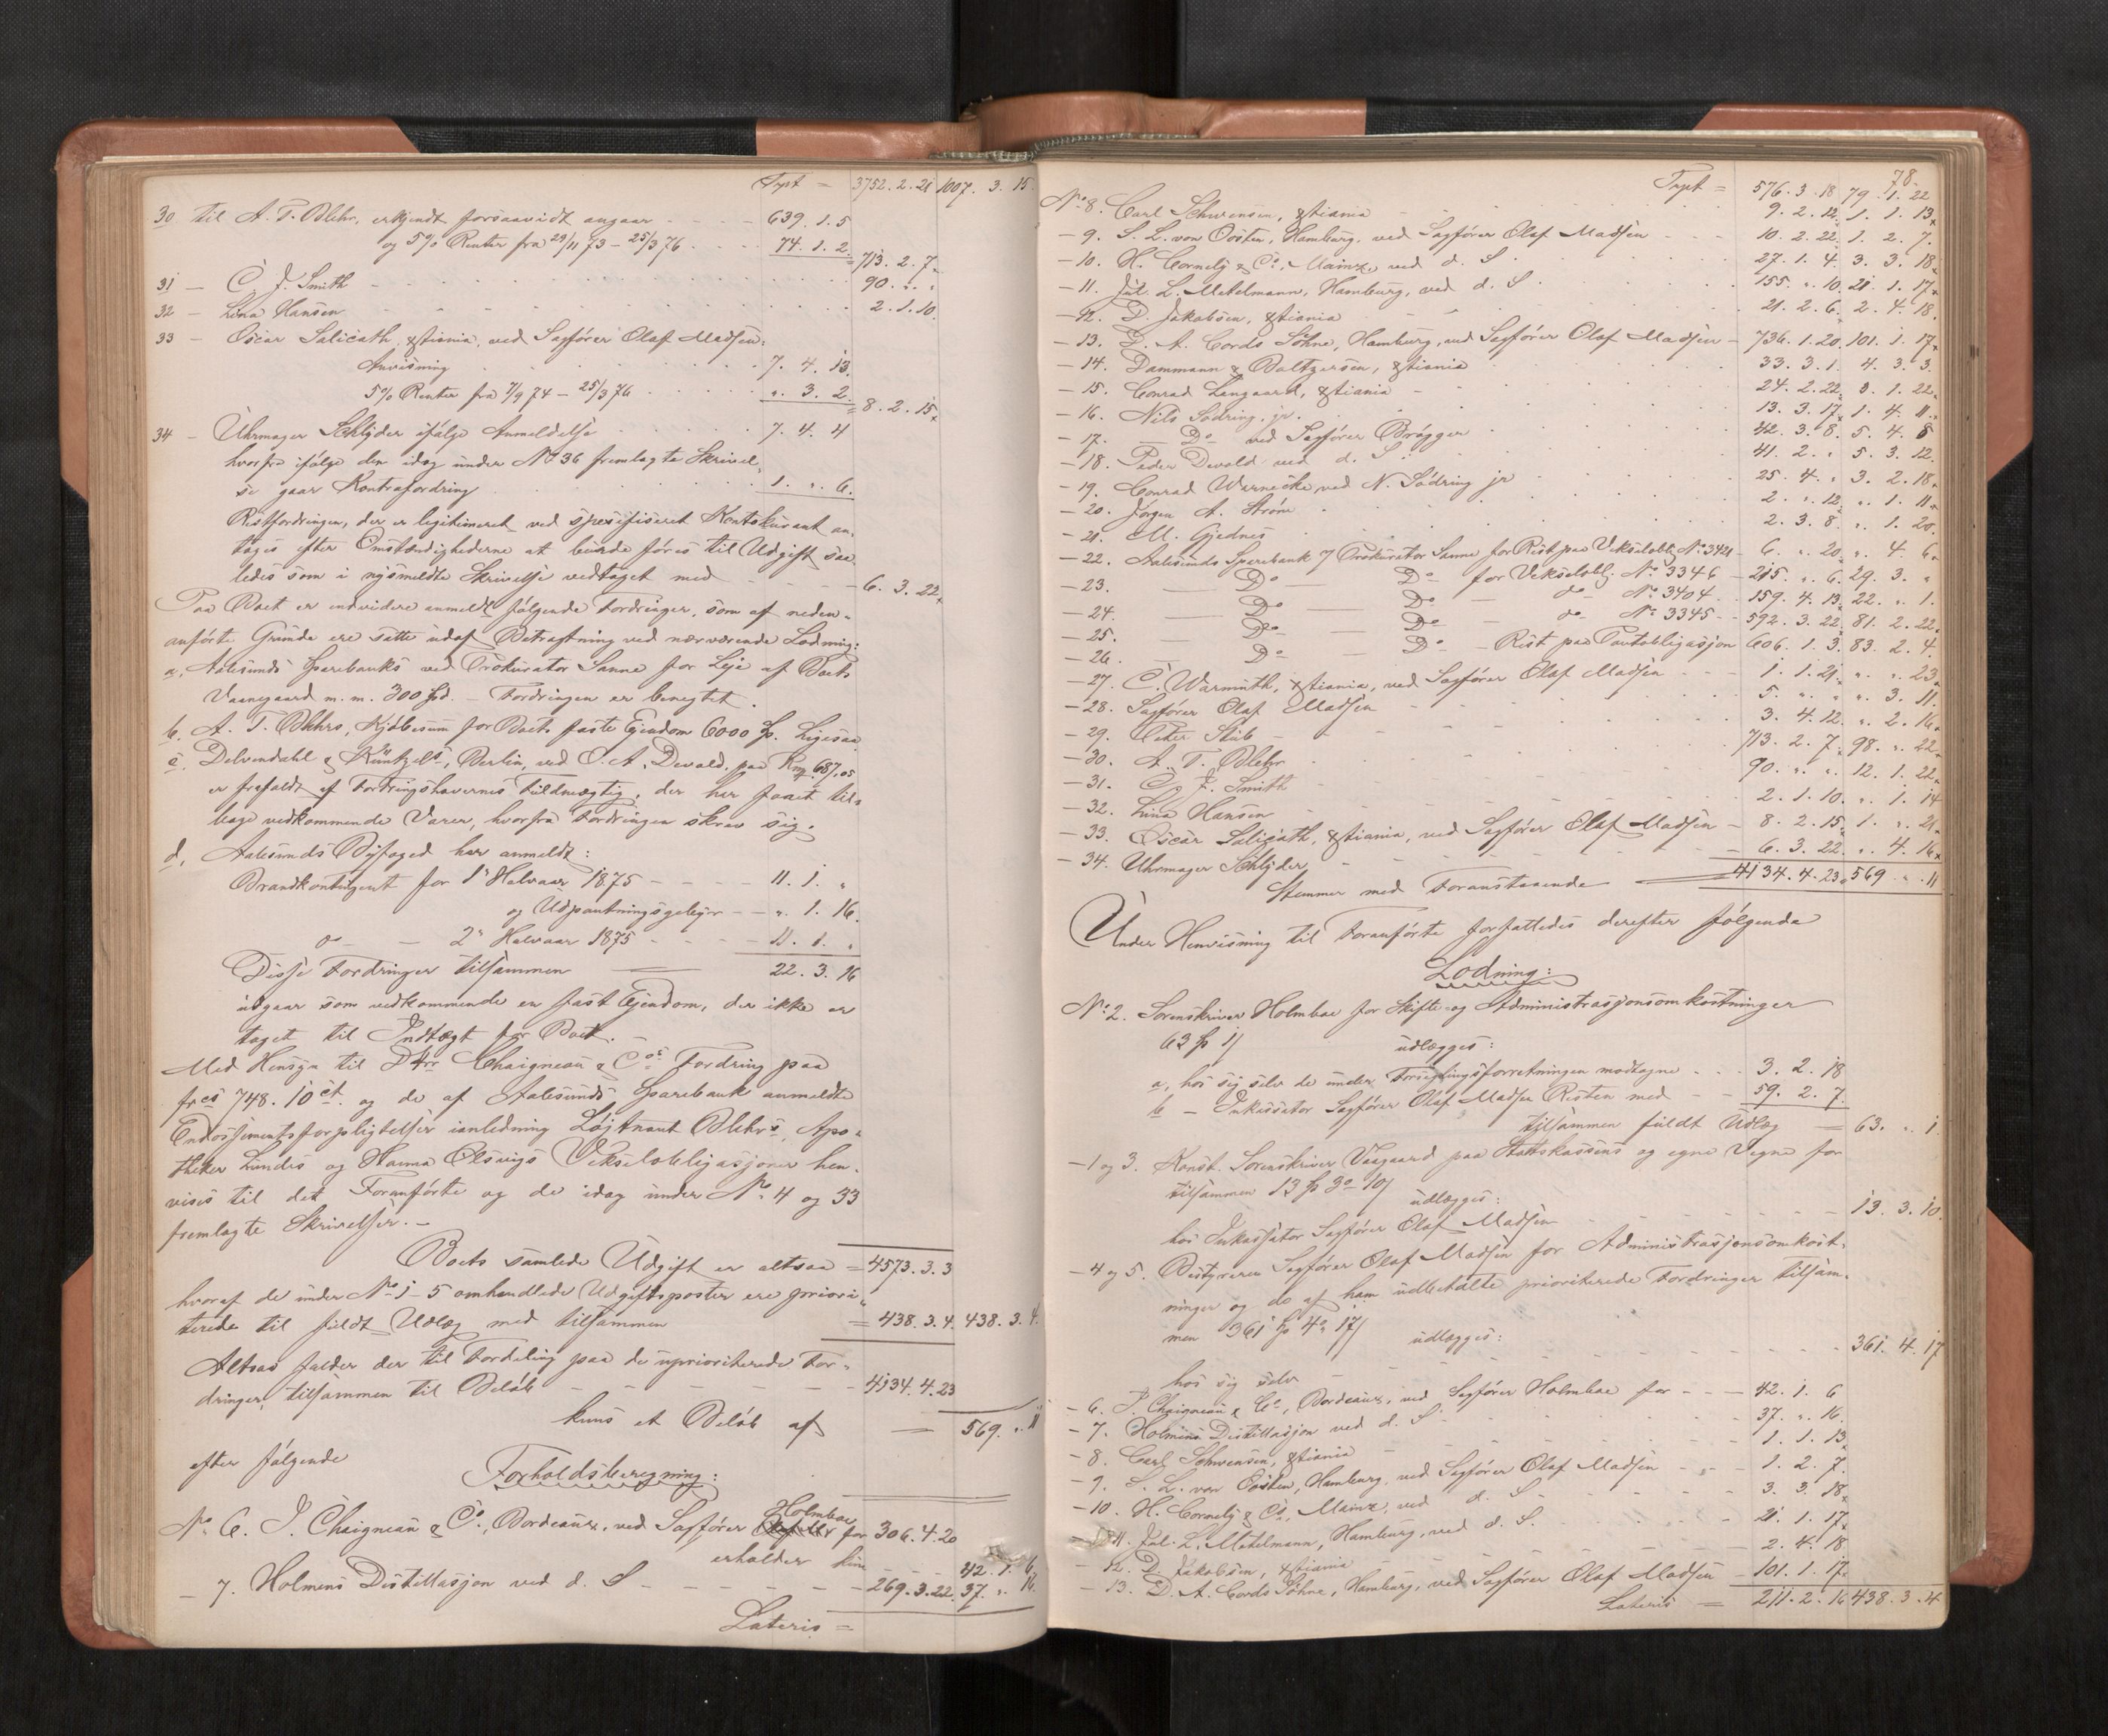 Trpt = 3752. 2. 21 1007. 3. 15.
30 til A. T. Blehr, erkjendt forsaavidt angaar - - - 639. 1. 5
og 5% Renter fra 29/11 73 – 25/3 76 - - - 74. 1. 2. = 713. 2. 7.
31 – C. J. Smith - - - 90. „. „
32 – Lina Hansen - - - 2. 1. 10.
33 – Oscar Salicath, Xstiania, ved Sagfører Olaf Madsen:
Anvisning - - - 7. 4. 13.
5% Renter fra 7/9 74 – 25/3 76 - - - „. 3. 2. = 8. 2. 15.
34 – Uhrmager Schlyder ifølge Anmeldelse - - - 7. 4. 4
hvorfra ifølge den idag under No 36 fremlagte Skrivel-
se gaar Kontrafordring - - - 1. „. 6.
Restfordringen, der er legitimeret ved spesifiseret Kontokurant an-
tages efter Omstændighederne at burde føres til Udgift saa-
ledes som i nysmeldte Skrivelse vedtaget med - - - 6. 3. 22.
Paa Boet er endvidere anmeldt følgende Fordringer, som af neden-
anførte Grunde ere satte udaf Betragtning ved nærværende Lodning:
a. Aalesunds Sparebanks ved Prokurator Sanne for Leje af Boets
Vaaregaard m. m. 300 Spd. – Fordringen er benegtet.
b. A. T. Blehrs, Kjøbesum for Boets faste Ejendom 6000 Sp. Ligesaa
c. Delvendahl & Küntzels, Berlin, ved O. A. Devold, paa Rm. 687,05
er frafaldt af Fordringshavernes Fuldmægtig, der har faaet til-
bage vedkommende Varer, hvorfra Fordringen skrev sig.
d, Aalesunds Byfoged har anmeldt:
Brandkontingent for 1s Halvaar 1875 - - - 11. 1. „
og Udpantningsgebyr - - „. 1. 16.
do – – 2s Halvaar 1875 - - - 11. 1. „
Disse Fordringer tilsammen — 22. 3. 16
udgaar som vedkommende en fast Ejendom, der ikke er
taget til Indtægt for Boet.
Med Hensyn til Chaigneau & Cos Fordring paa
frcs 748. 10 ct. og de af Aalesunds Sparebank anmeldte
Endossementsforpligtelser ianledning Løjtnant Blehrs, Apo-
theker Lundes og Hanna Olsvigs Vekselobligasjoner hen-
vises til det Foranførte og de idag under No 4 og 33
fremlagte Skrivelser. –
Boets samlede Udgift er altsaa = 4573. 3. 3
hvoraf de under No 1–5 omhandlede Udgiftsposter ere priori-
terede til fuldt Udlæg med tilsammen = 438. 3. 4. 438. 3. 4.
Altsaa falder der til Fordeling paa de uprioriterede For-
dringer, tilsammen til Beløb - - - 4134. 4. 23
kuns et Beløb af — 569. „. 11
efter følgende
Forholdsberegning:
No 6. P. Chaigneau & Co, Bordeaux, ved Sagfører Holmboe for 306. 4. 20
erholder kun - - 42. 1. 6.
– 7. Holmens Distillasjon ved d. S - - - 269. 3. 22. 37. „. 16.
Lateris =
78.
Trpt = 576. 3. 18 79. 1. 22
No 8. Carl Schwensen, Xstiania - - - 9. 2. 12. 1. 1. 13.
– 9. S. L. von Oosten, Hamburg, ved Sagfører Olaf Madsen - - 10. 2. 22. 1. 2. 7.
– 10. H. Cornely & Co, Mainz, ved d. S - - - 27. 1. 4. 3. 3. 18.
– 11. Jul. L. Metelmann, Hamburg, ved d. S - - - 155. „. 10. 21. 1. 17.
– 12. D. Jakobsen, Xstiania - - - 21. 2. 6. 2. 4. 18.
– 13. D. A. Cords Söhne, Hamburg, ved Sagfører Olaf Madsen – 736. 1. 20. 101. 1. 17.
– 14. Dammann & Baltzersen, Xstiania - - - 33. 3. 1. 4. 3. 3.
– 15. Conrad Langaard, Xstiania - - - 24. 2. 22. 3. 1. 22.
– 16. Nils Sødring, jr. - - - 13. 3. 17. 1. 4. 11.
– 17. – Do ved Sagfører Brøgger - - - 42. 3. 8. 5. 4. 8
– 18. Peder Devold ved d. S - - - 41. 2. „. 5. 3. 12.
– 19. Conrad Warnecke ved N. Sødring jr - - - 25. 4. „ 3. 2. 18.
– 20. Jørgen A. Strøm - - - 2. „. 12. „. 1. 11.
– 21. M. Gjednes - - - 2. 3. 8. „. 1. 20.
– 22. Aalesunds Sparebank v/ Prokurator Sanne for Rest paa Vekseloblig. No 3421 – 6. „. 20. „. 4. 6.
– 23. — Do — Do – for Vekseloblig. No 3346 – 215. „. 6. 29. 3. „
– 24. — Do — Do – do No 3404 - 159. 4. 13. 22. „. 1.
– 25. — Do — Do – do No 3345 - 592. 3. 22. 81. 2. 22.
– 26. Do — Do – Rest paa Pantobligasjon 606. 1. 3. 83. 2. 4.
– 27. C. Warmuth, Xstiania, ved Sagfører Olaf Madsen - - 1. 1. 21. „. „. 23.
– 28. Sagfører Olaf Madsen - - - 5. „. „. „. 3. 11.
– 29. Peter Stub - - - 3. 4. 12. „. 2. 16.
– 30. A. T. Blehr - - - 713. 2. 7. 98. „. 22.
– 31. C. J. Smith - - - 90. „. „. 12. 1. 22.
– 32. Lina Hansen - - - 2. 1. 10. „. 1. 14
– 33. Oscar Salicath, Xstiania, ved Sagfører Olaf Madsen – 8. 2. 15. 1. „. 21.
– 34. Uhrmager Schlyder - - - 6. 3. 22. „. 4. 16.
Stemmer med Foranstaaende — 4134. 4. 23. 569 „. 11
Under Henvisning til Foranførte forfattedes derefter følgende
Lodning:
No 2. Sorenskriver Holmboe for Skifte- og Administrasjonsomkostninger
63 Sp 1/ udlægges:
a, hos sig selv de under Forseglingsforretningen modtagne - - - 3. 2. 18
b – Inkassator Sagfører Olaf Madsen Resten med - - 59. 2. 7.
tilsammen fuldt Udlæg = 63. „. 1.
– 1 og 3. Konst. Sorenskriver Vaagaard paa Statskassens og egne Vegne for
tilsammen 13 Sp 3o 10/ udlægges:
hos Inkassator Sagfører Olaf Madsen - - - 13. 3. 10.
– 4 og 5. Bestyreren Sagfører Olaf Madsen for Administrasjonsomkost-
ninger og de af ham udbetalte prioriterede Fordringer tilsam-
men 361 Sp 4o 17/ udlægges:
hos sig selv - - - 361. 4. 17
– 6. P. Chaigneau & Co, Bordeaux, ved Sagfører Holmboe for - - – 42. 1. 6
– 7. Holmens Distillasjon ved d. S - - - 37. „. 16.
– 8. Carl Schwensen, Xstiania - - - 1. 1. 13.
– 9. S. L. von Oosten, Hamburg, ved Sagfører Olaf Madsen - - - 1. 2. 7.
– 10. H. Cornely & Co, Mainz, ved d. S - - - 3. 3. 18.
– 11. Jul. L. Metelmann, Hamburg, ved d. S. - - - 21. 1. 17.
– 12. D. Jakobsen, Xstiania - - - 2. 4. 18
– 13. D. A. Cords Söhne, Hamburg, ved Sagfører Olaf Madsen – 101. 1. 17.
Lateris = 211. 2. 16 438. 3. 4